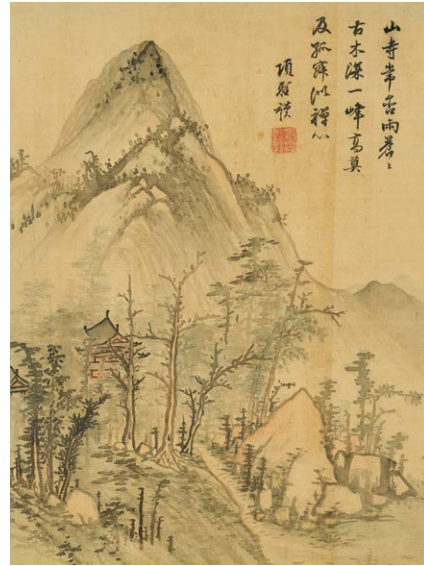 山寺常含雨蒼〻
古木深一峰高莫
及孤寂似禪心
項聖謨